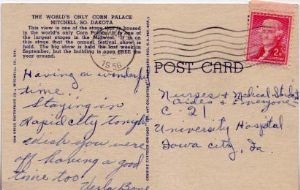 THE WORLD'S ONLY CORN PALACE
MITCHELL, SO. DAKOTA
This view is one of the stage that is housed
in the world's only Corn Palace. It is one of
the largest stages in the Midwest. It is on
this stage that the annual festival show is
held. The big show is held the last week in
September, but the building is open FREE the
year around.
1956
POST CARD
2¢
Having a wonderful
time.
Staying in
Rapid City tonight
wish you were
off having a good
time too!
Nurses & Medical Students
Aides & Everyone
C-21
University Hospital
Iowa City, Ia